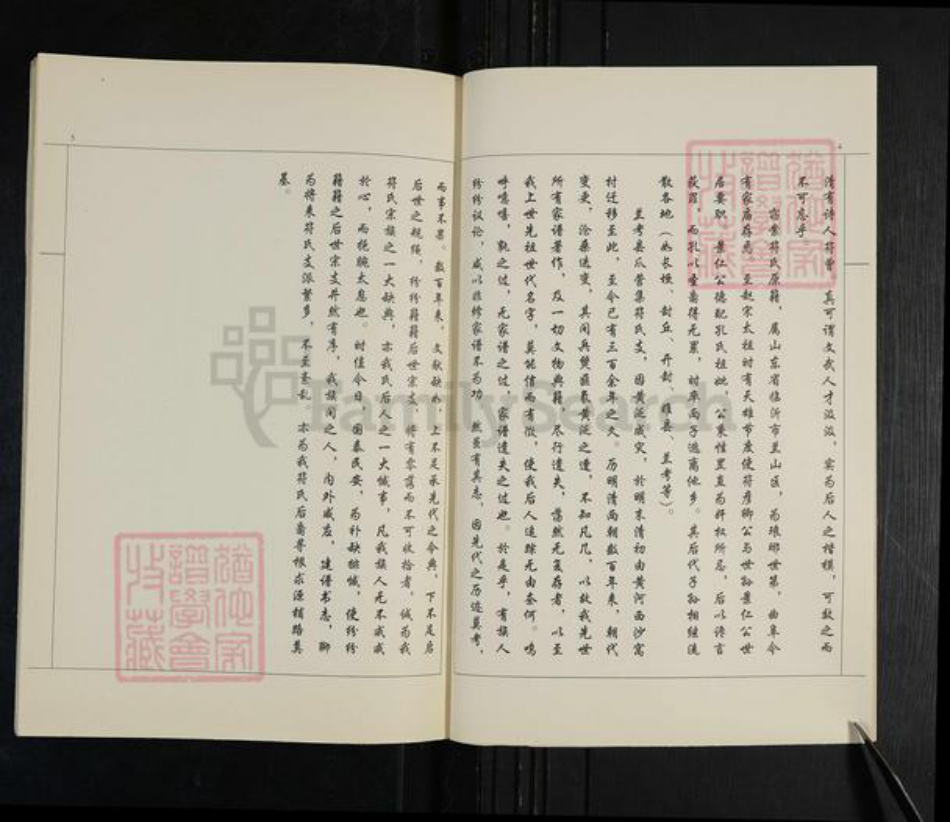 4
清有诗人符曾，真可谓文武人才汲汲，实为后人之楷模，可敬之而
不可忽乎
窃案符氏原籍，属山东省临沂市兰山区，为琅琊世第，曲阜今
有家庙存焉。至赵宋太祖时有天雄节度使符彦卿公与世孙景仁公世
居要职，景仁公德配孔氏祖妣，公秉性罡直为奸权所忌，后以谗言
获罪，而孔以圣裔得无累，时率两子逃离他乡。其后代子孙相继流
散各地（如长垣、封丘、开封、睢县、兰考等）。
兰考县瓜营集符氏支，因黄泛成灾，於明末清初由黄河西沙窝
村迁移至此，至今已有三百余年之久。历明清两朝数百年来，朝代
变更，沧桑迭变，其间兵燹匪氛黄泛之遭，不知凡几，以致我先世
所有家谱著作，及一切文物典籍，尽行遗失，荡然无复存者，以至
我上世先祖世代名字，莫能信而有徵，使我后人追踪无由奈何。呜
呼噫嘻，孰之过，无家谱之过，家谱遗失之过也。於是乎，有族人
纷纷议论，咸以非修家谱不为功，然虽有其志，因先代之历迹莫考，
5
而事不果。数百年来，文献缺如，上不足承先代之令典，下不足启
后世之规绳，纷纷籍籍后世宗支，将有零落而不可收拾者，诚为我
符氏宗族之一大缺典，亦我氏后人之一大憾事，凡我族人无不戚戚
於心，而扼腕太息也。时值今日，国泰民安，为补缺排憾，使纷纷
籍籍之后世宗支井然有序，我族间之人，内外咸应，建谱书志，聊
为将来符氏支派繁多，不至紊乱。亦为我符氏后裔寻根求源稍路其
基。
FamilySearch